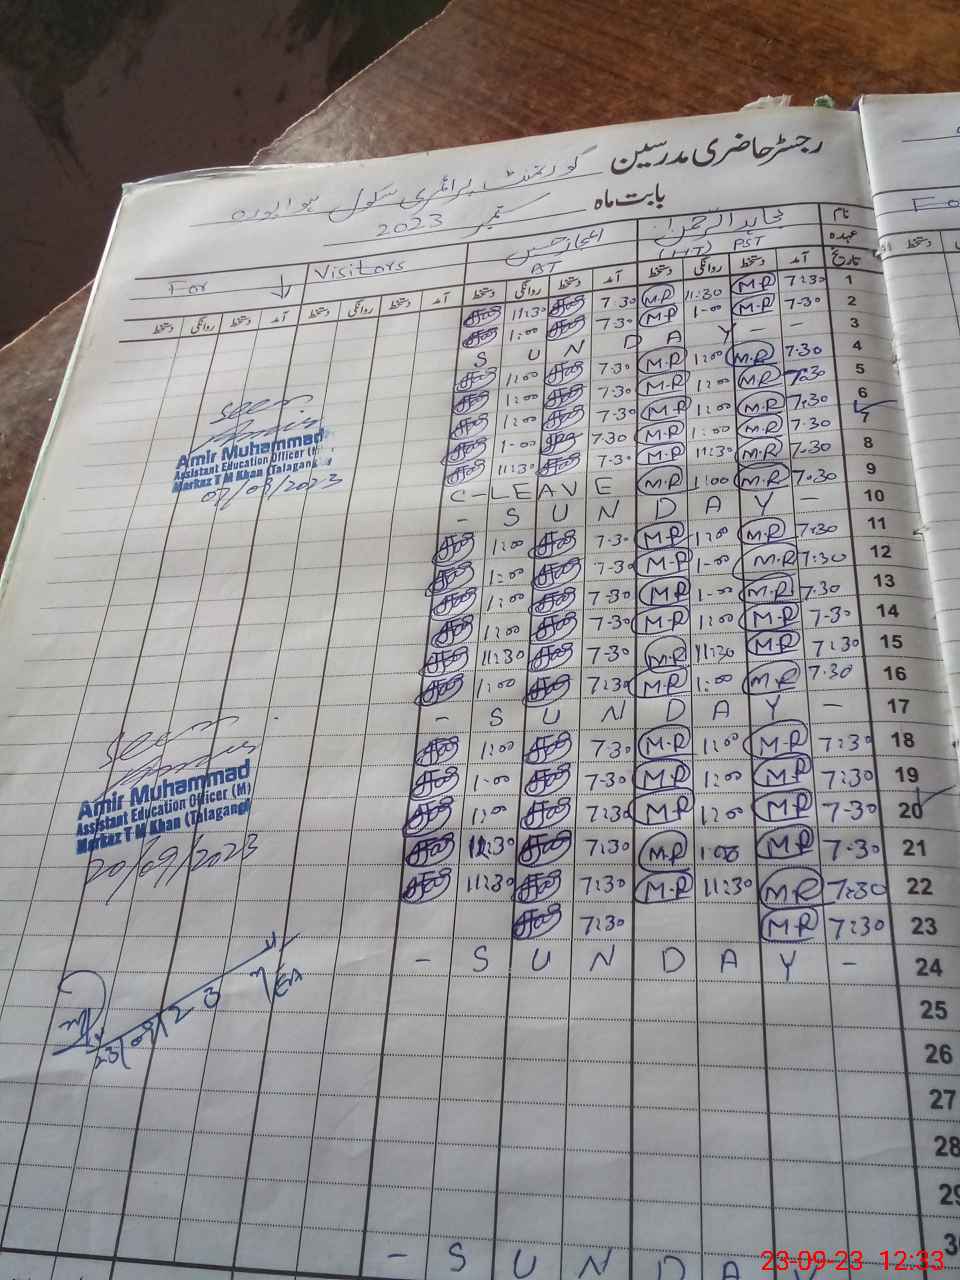 رجسٹر حاضری مدرسین گورنمنٹ پرائمری سکول
بابت ماہ ستمبر 2023
نام
عہدہ
تاریخ
مجاہد الرحمن
(HT) PST
اعجاز حسین
AT
Visitors
For
آمد دستخط روانگی دستخط آمد دستخط روانگی دستخط آمد دستخط روانگی دستخط آمد دستخط روانگی دستخط
1 7:30 M.R 11:30 M.R 7.30 11:30
2 7-30 M.R 1-00 M.P 7.30 1:00
3 - - Y A D N U S
4 7.30 M.R 1:00 M.R 7.30 1:00
5 7:30 M.R 1:00 M.R 7.30 1:00
6 7:30 M.R 1:00 M.R 7.30 1:00
7 7.30 M.R 1:00 M.R 7.30 1-00
8 7-30 M.R 11:30 M.R 7.30 11:30
9 7.30 M.R 1:00 M.R C-LEAVE
10 - SUNDAY -
11 7:30 M.R 1:00 M.R 7.30 1:00
12 7:30 M.R 1-00 M.R 7-30 1:00
13 7.30 M.R 1-00 M.R 7-30 1:00
14 7-30 M.R 1:00 M.R 7-30 1:00
15 7:30 M.R 11:30 M.R 7-30 11:30
16 7.30 M.R 1:00 M.R 7:30 1:00
17 - SUNDAY -
18 7:30 M.R 1:00 M.R 7.30 1:00
19 7:30 M.R 1:00 M.R 7-30 1-00
20 7-30 M.R 1:00 M.R 7:30 1:00
21 7.30 M.R M.R 7:30
22 7:30 M.R 11:30 M.R 7:30 11:30
23 7:30 M.R 7:30
24 - SUNDAY -
25
26
27
28
29
30
- SUNDAY
Seen
Amir Muhammad
Assistant Education Officer (M)
Markaz T M Khan (Talagang)
07/09/2023
Seen
Amir Muhammad
Assistant Education Officer (M)
Markaz T M Khan (Talagang)
20/09/2023
23/09/23
MEA
23-09-23 12:33